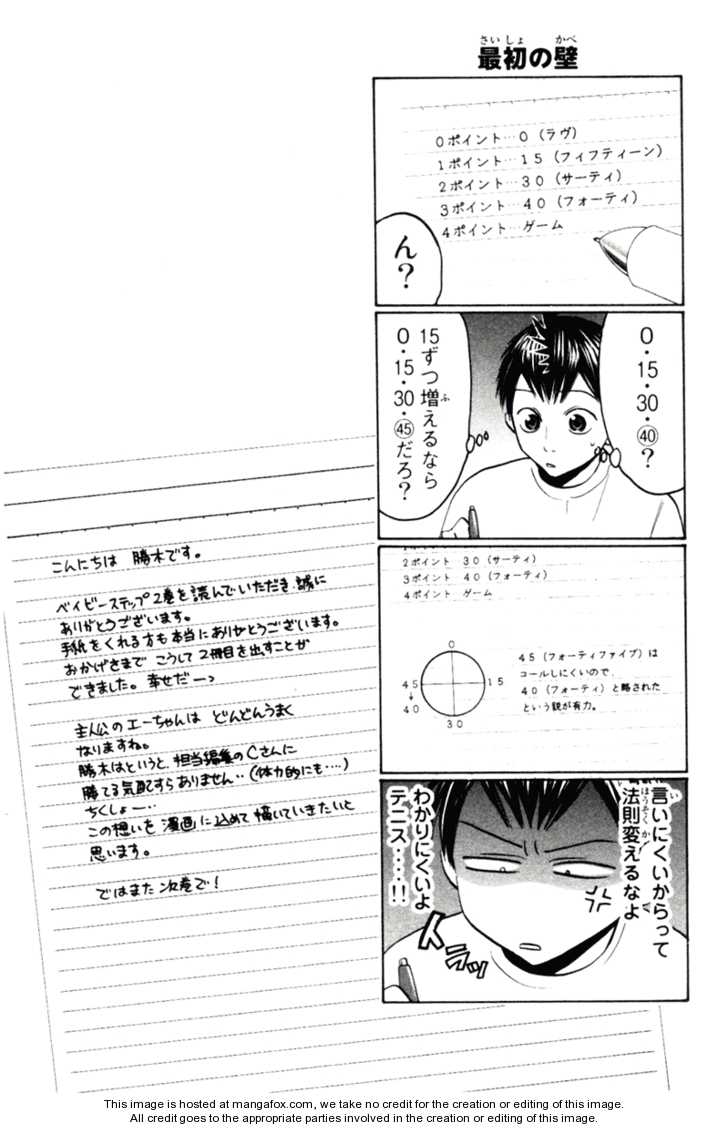 最初の壁
さいしょ かべ
0ポイント…0(ラヴ)
1ポイント…15(フィフティーン)
2ポイント…30(サーティ)
3ポイント…40(フォーティ)
4ポイント…ゲーム
ん?
0・15・30・㊵?
15ずつ増えるなら
ふ
0・15・30・㊺だろ?
2ポイント 30(サーティ)
3ポイント 40(フォーティ)
4ポイント ゲーム
0
15
30
45
↓
40
45(フォーティファイブ)は
コールしにくいので、
40(フォーティ)と略された
という説が有力。
言いにくいからって
い
法則変えるなよ
ほうそく か
わかりにくいよ
テニス‥‥!!
イラッ
こんにちは 勝木です。
ベイビーステップ2巻を読んでいただき、誠に
ありがとうございます。
手紙をくれる方も本当にありがとうございます。
おかげさまで こうして2冊目を出すことが
できました。幸せだーっ
主人公のエーちゃんは どんどんうまく
なりますね。
勝木はというと、担当編集のCさんに
勝てる気配すらありません‥(体力的にも‥‥)
ちくしょー‥
この想いを漫画に込めて描いていきたいと
思います。
ではまた次巻で!
This image is hosted at mangafox.com, we take no credit for the creation or editing of this image.
All credit goes to the appropriate parties involved in the creation or editing of this image.